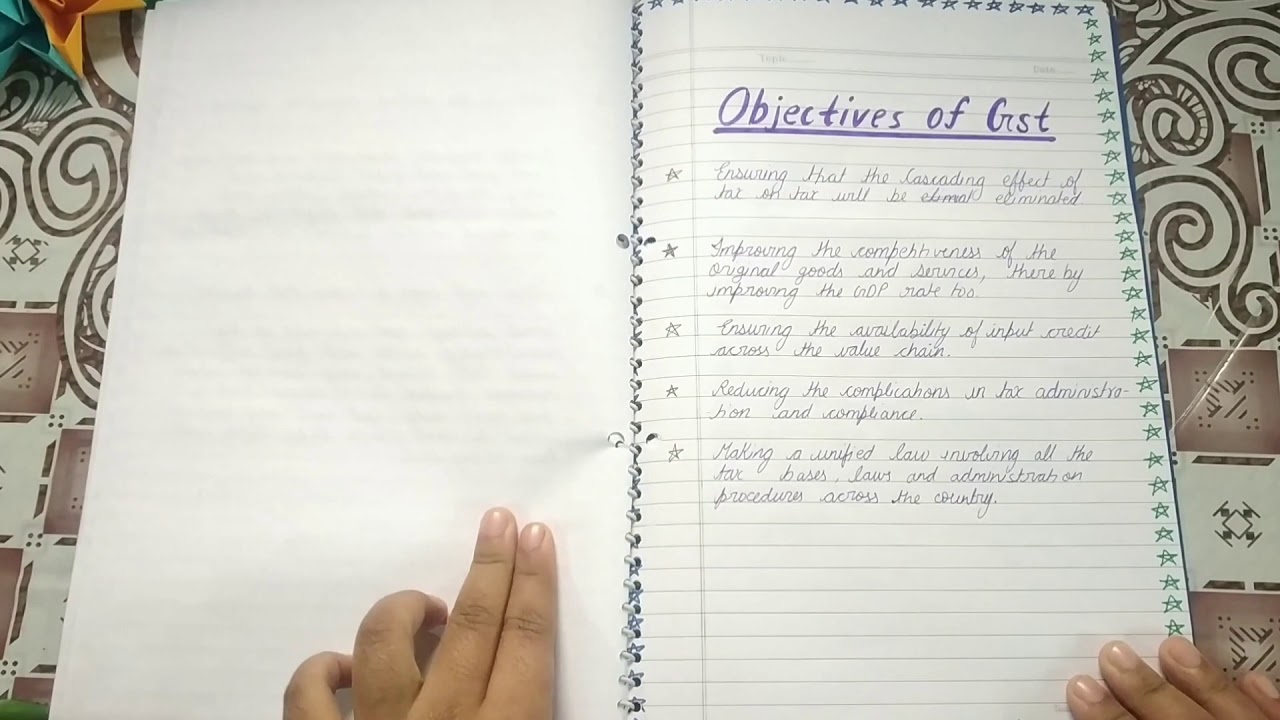 Topic
Date
Objectives of Gst
Ensuring that the Cascading effect of
tax on tax will be eliminated.
Improving the competitiveness of the
original goods and services, there by
improving the GDP rate too.
Ensuring the availability of input credit
across the value chain.
Reducing the complications in tax administra-
tion and compliance.
Making a unified law involving all the
tax bases, laws and administration
procedures across the country.